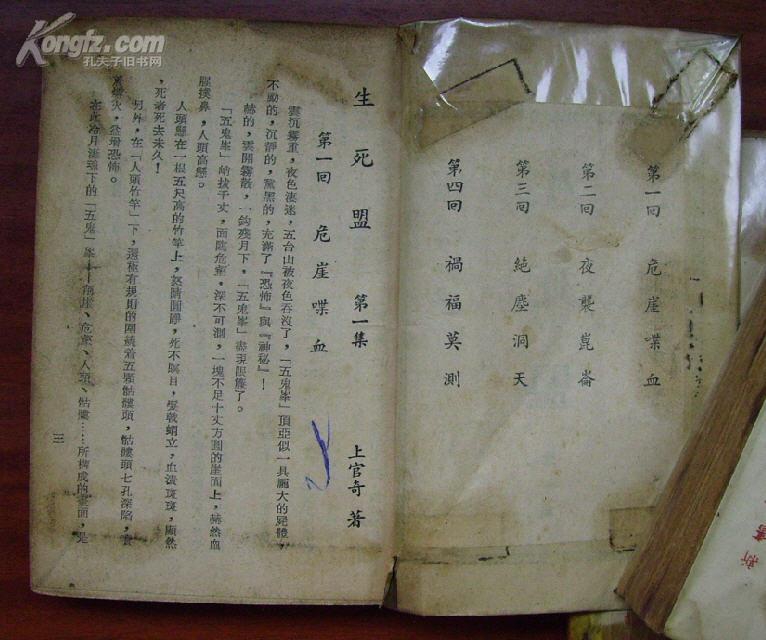 Kongfz.com
孔夫子旧书网
第一回 危崖喋血
第二回 夜襲崑崙
第三回 絶塵洞天
第四回 禍福莫測
生死盟 第一集 上官奇 著
第一回 危崖喋血
雲沉霧重，夜色淒迷，五台山被夜色吞沒了，「五鬼峯」頂亞似一具龐大的屍體，
不動的，沉靜的，黧黑的，充滿了『恐怖』與『神秘』！
的，雲開霧散，一鈎殘月下，「五鬼峯」盡現眼簾了。
「五鬼峯」峭拔千丈，面臨危崖，深不可測，一塊不足十丈方圓的崖面上，赫然血
腥撲鼻，人頭高懸。
人頭懸在一根五尺高的竹竿上，怒睛圓睜，死不瞑目，髮戟蝟立，血漬斑斑，顯然
，死者死去未久！
另外，在「人頭竹竿」下，還極有規則的圍繞着五顆骷髏頭，骷髏頭七孔深陷，
火，益增恐怖。
冷月 下的「五鬼」峯 危崖、人頭、骷髏……所構成的畫面，是
三
新
書